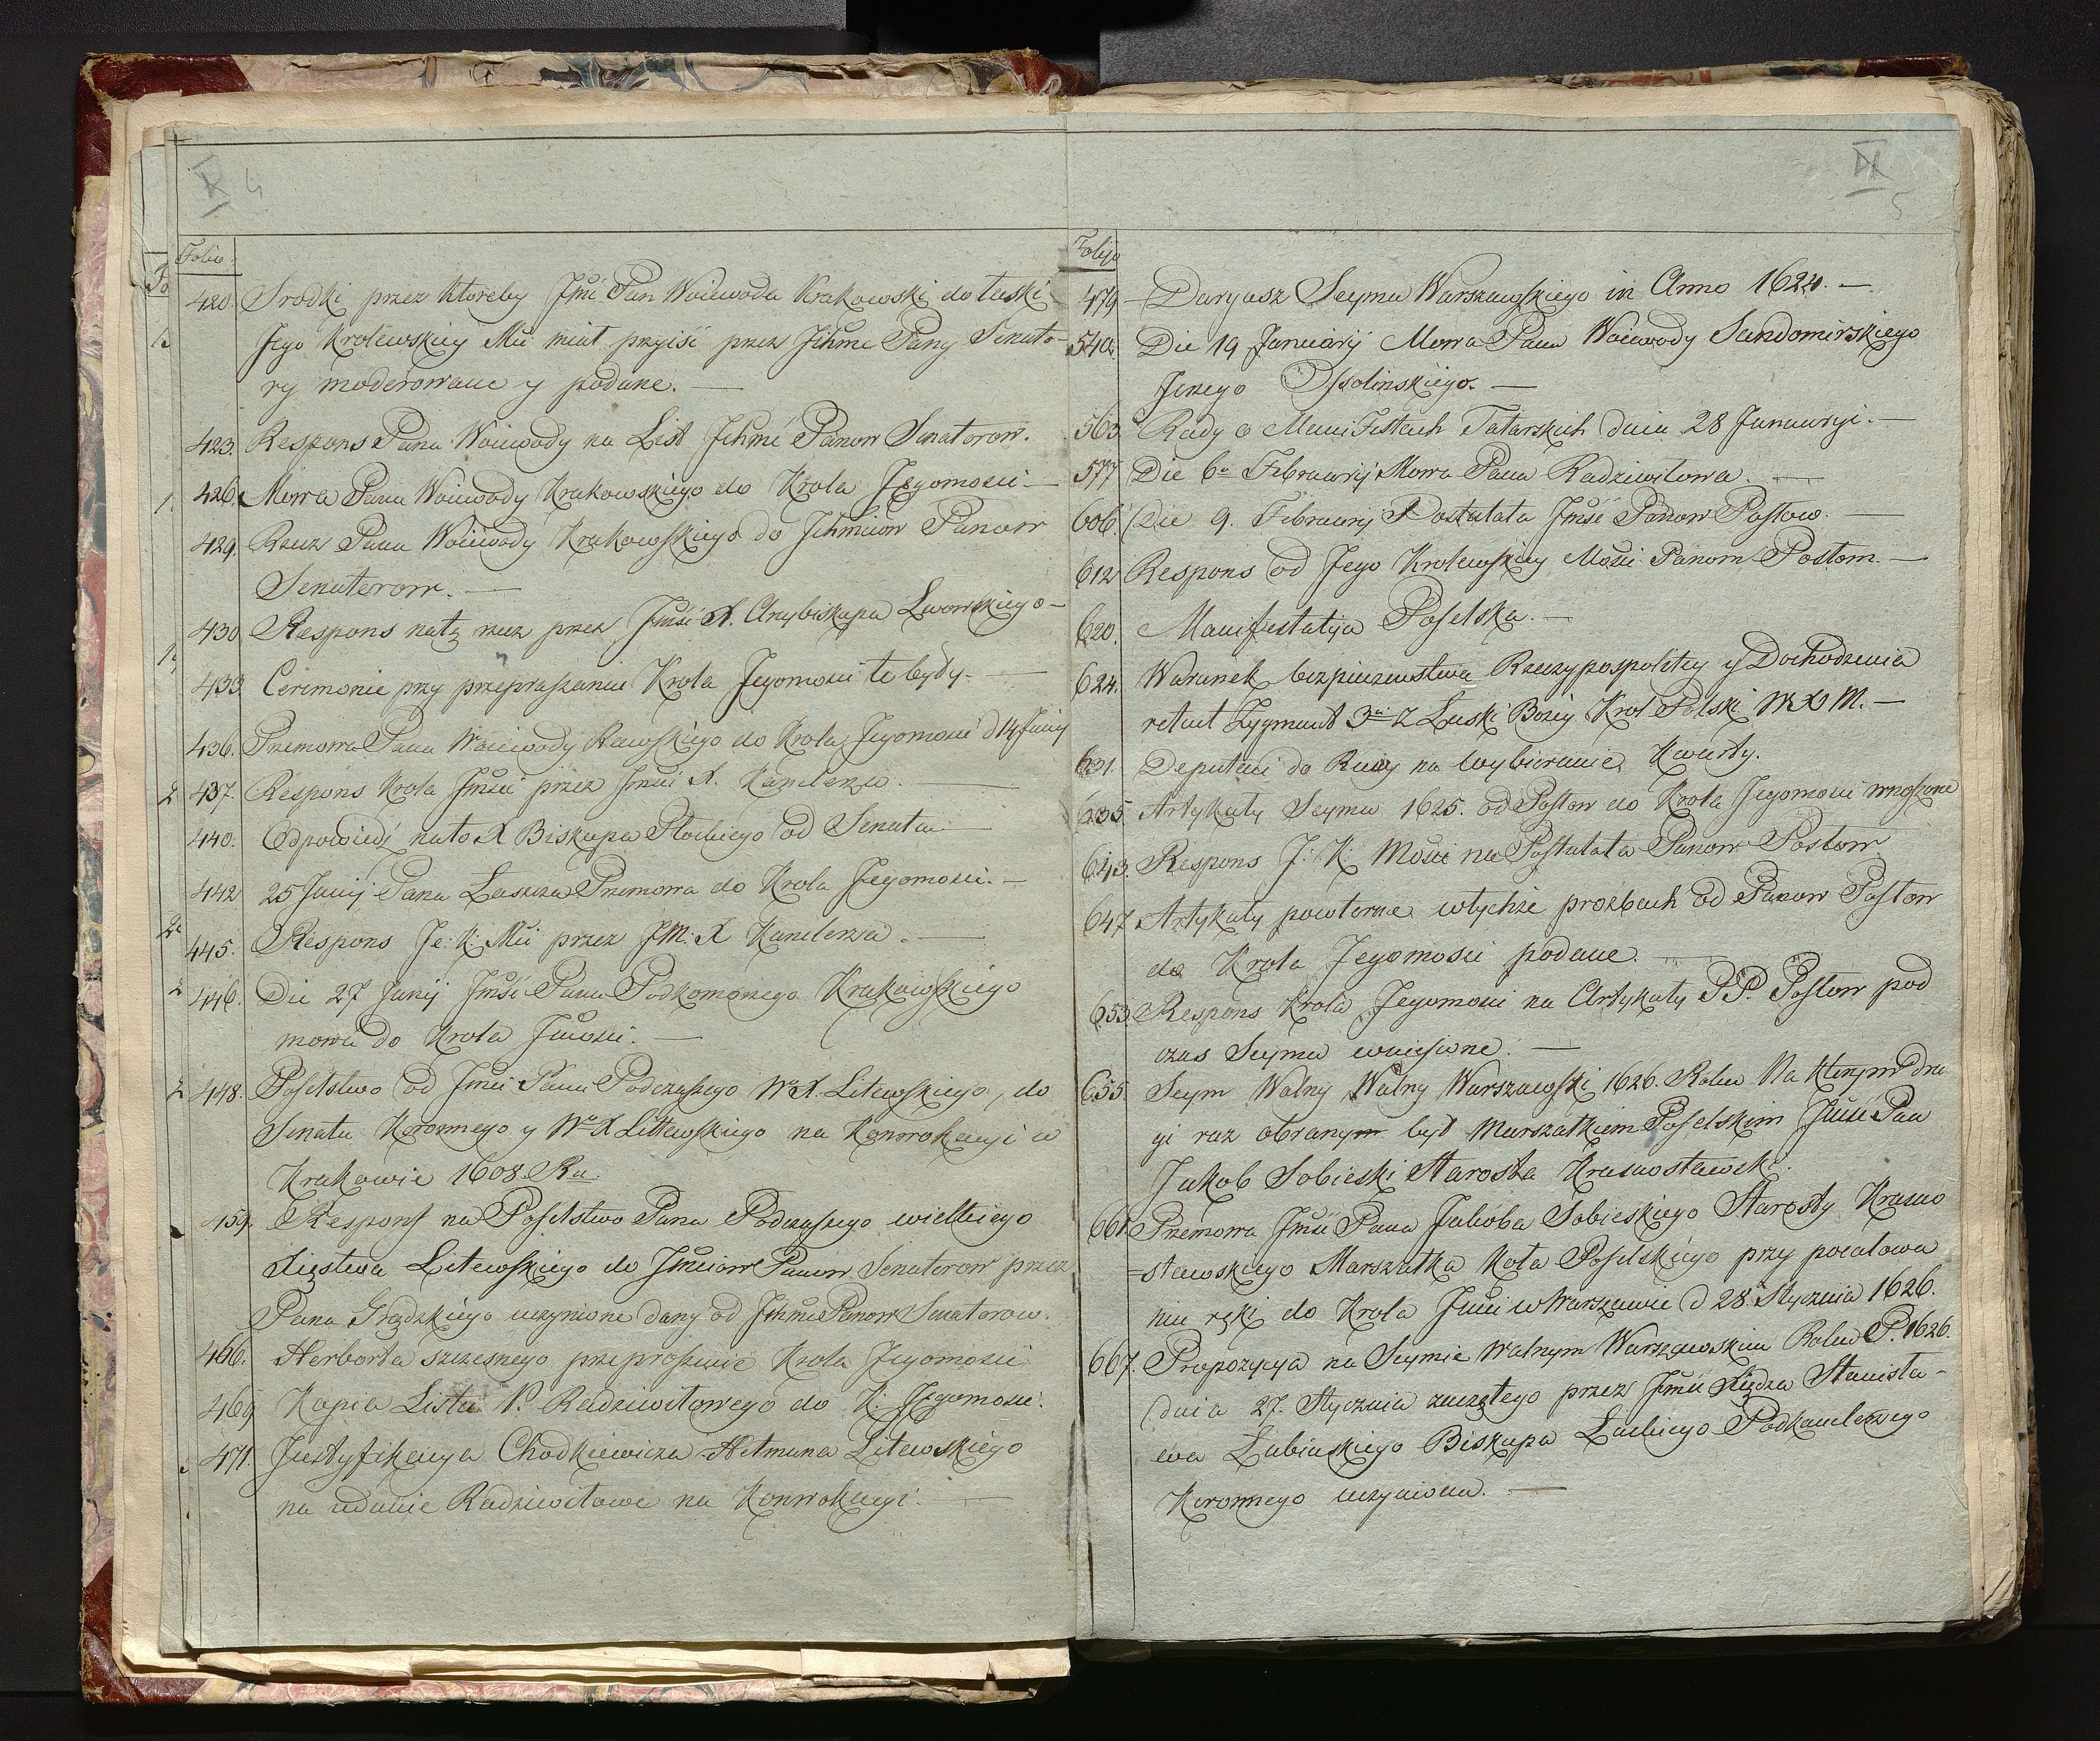 4
Folio.
420. Srodki przez ktoreby Jmć Pan Woiewoda Krakowski do łaski
Jego Krolewskiey Mci miał przyiść przez Jchmc Pany Senato-
ry moderowane y podane. —
423. Respons Pana Woiewody na List Jchmć Panow Senatorow.
426. Mowa Pana Woiewody Krakowskiego do Krola Jegomosci —
429. Rzecz Pana Woiewody Krakowskiego do Jchmciow Panow
Senatorow. —
430 Respons natę rzecz przez Jmści X. Arcybiskupa Lwowskiego —
433 Ceremonie przy przepraszaniu Krola Jegomosci te były. —
436. Przemowa Pana Woiewody Rawskiego do Krola Jegomosci d 14 Junij
437. Respons Krola Jmści przez Jmści X. Kanclerza. —
440. Odpowiedź nato X Biskupa Płockiego od Senatu —
442 25 Junij Pana Laszcza Przemowa do Krola Jegomosci. —
445. Respons Je: K: Mci przez JM: X Kanclerza. —
446. Die 27 Junij Jmści Pana Podkomorzego Krakowskiego
mowa do Krola Jmosci. —
448. Poselstwo od Jmści Pana Podczaszego W. X. Litewskiego, do
Senatu Koronnego y Wo X Littewskiego na Konwokacyi w
Krakowie 1608. Ru.
459. Respons na Poselstwo Pana Podczaszego wielkiego
Xięstwa Litewskiego do Jmciow Panow Senatorow przez
Pana Grądzkiego uczynione dany od Jchmc Panow Senatorow.
466. Herborta szczęsnego przeproszenie Krola Jegomosci
469 Kopia Listu P. Radziwiłowego do K: Jegomosci.
471. Justyfikacya Chodkiewicza Hetmana Litewskiego
na udanie Radziwiłowe na Konwokacyi. —
5
Folijo
479 — Daryusz Seymu Warszawskiego in Anno 1624. —
540. Die 19 Januarij Mowa Pana Woiewody Sandomirskiego
Jerzego Ossolinskiego. —
563. Rady o Manifestach Tatarskich dnia 28 Januaryi. —
577 Die 6a Februarij Mowa Pana Radziwiłowa. —
606. Die 9. Februarij Postulata Jmść Panow Posłow. —
612 Respons od Jego Krolewskiey Mości Panom Posłom. —
620. Manifestatija Poselska. —
624. Warunek bezpieczenstwa Rzeczypospolitey y Dochodzenia
retent Zygmunt 3ci Z Łaski Bożey Krol Polski W. X. M. —
631. Deputaci do Rawy na wybieranie Kwarty.
635. Artykuły Seymu 1625. od Posłow do Krola Jegomosci wnoszone
643. Respons J: K: Mości na Postulata Panow Posłow
647 Artykuły powtorne wtychże prozbach od Panow Posłow
do Krola Jegomosci podane. —
653. Respons Krola Jegomosci na Artykuły PP. Posłow pod
czas Seymu wniesione. —
655. Seym Walny Walny Warszawski 1626. Roku Na Ktorym dru
gi raz obranym był Marszałkiem Poselskim Jmść Pan
Jakob Sobieski Starosta Krasnostawski.
661. Przemowa Jmści Pana Jakoba Sobieskiego Starosty Krasno
=stawskiego Marszałka Koła Poselskiego przy pocałowa
niu ręki do Krola Jmci w Warszawie d 28. Stycznia 1626.
667. Propozycya na Seymie Walnym Warszawskim Roku P. 1626.
dnia 27. Stycznia zaczętego przez Jmści Xiędza Stanisła-
wa Łubinskiego Biskupa Łuckiego Podkanclerzego
Koronnego uczyniona. —